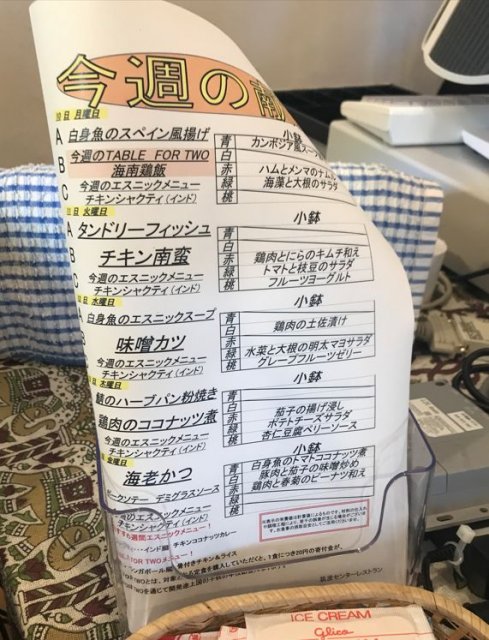 今週の献
月曜日
A 白身魚のスペイン風揚げ
B 今週のTABLE FOR TWO
海南鶏飯
C 今週のエスニックメニュー
チキンシャクティ(インド)
小鉢
青 カンボジア風スープ
白
赤 ハムとメンマのナムル
緑 海藻と大根のサラダ
桃
火曜日
A タンドリーフィッシュ
B チキン南蛮
C 今週のエスニックメニュー
チキンシャクティ(インド)
小鉢
青
白
赤 鶏肉とにらのキムチ和え
緑 トマトと枝豆のサラダ
桃 フルーツヨーグルト
水曜日
白身魚のエスニックスープ
味噌カツ
今週のエスニックメニュー
チキンシャクティ(インド)
小鉢
青
白 鶏肉の土佐漬け
赤
緑 水菜と大根の明太マヨサラダ
桃 グレープフルーツゼリー
木曜日
鯖のハーブパン粉焼き
鶏肉のココナッツ煮
今週のエスニックメニュー
チキンシャクティ(インド)
小鉢
青
白
赤 茄子の揚げ浸し
緑 ポテトチーズサラダ
桃 杏仁豆腐ベリーソース
金曜日
海老かつ
ポークソテー デミグラスソース
のエスニックメニュー
チキンシャクティ(インド)
小鉢
青 白身魚のトマトココナッツ煮
白 豚肉と茄子の味噌炒め
赤 鶏肉と春菊のピーナツ和え
緑
桃
週間エスニックメニュー
インド編 チキンココナッツカレー
FOR TWOメニュー
シンガポール編 骨付きチキン&ライス
を購入していただくと、1食につき20円の寄付金が、
筑波センターレストラン
ICE CREAM
Glico